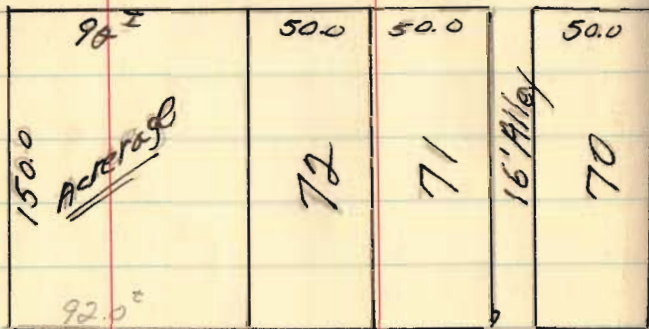 50.0
50.0
50.0
150.0
Acrerage
72
71
16' Alley
70
92.0±